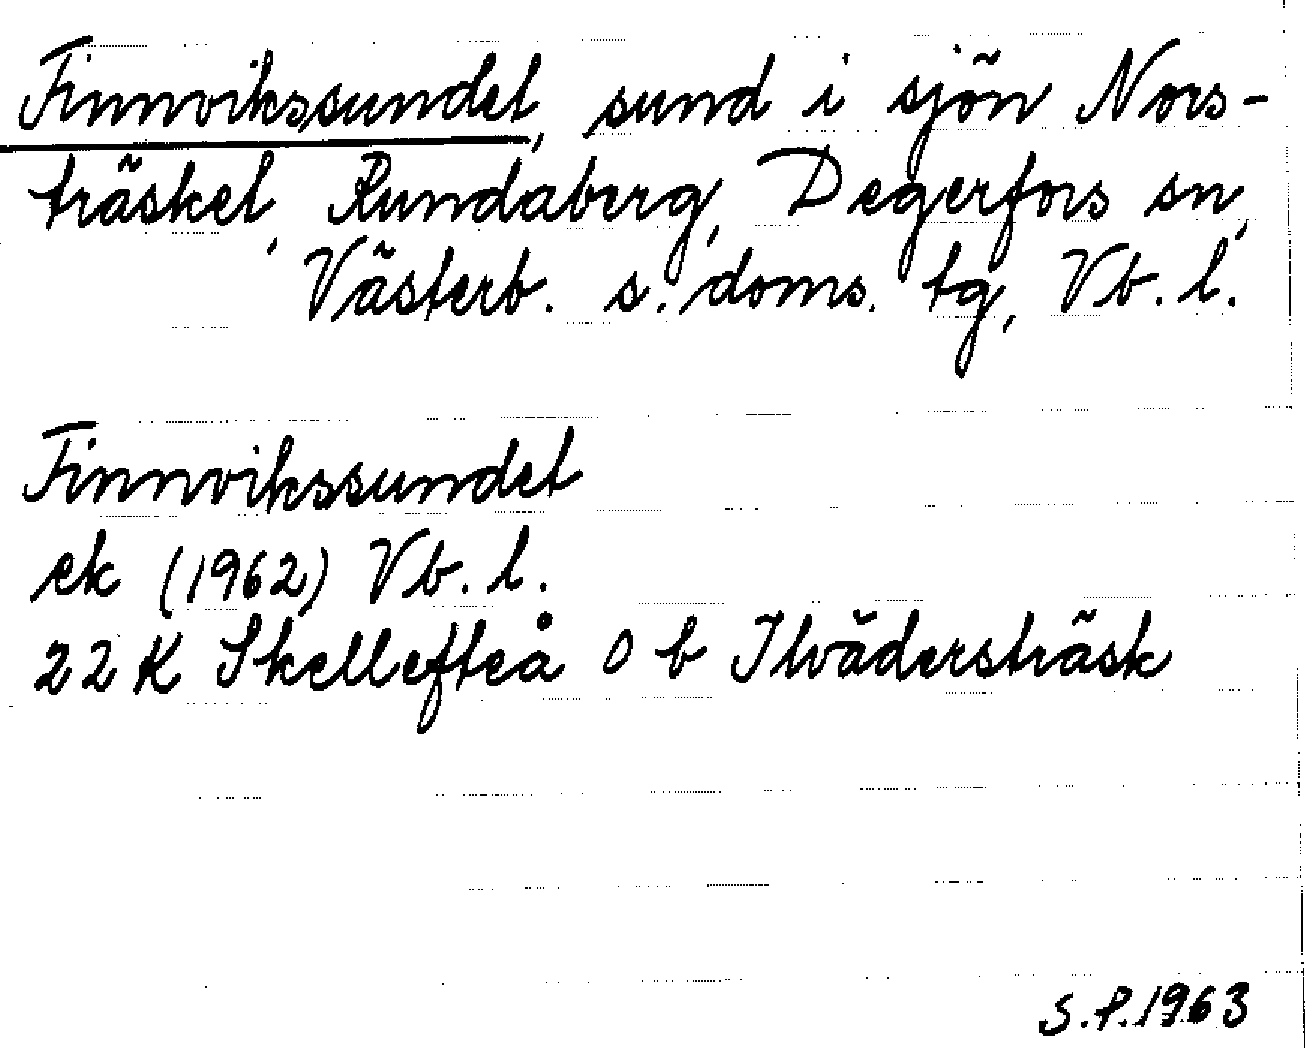 Finnvikssundet, sund i sjön Nors-
träsket, Rundaberg, Degerfors sn,
Västerb. s. doms. tg, Vb. l.
Finnvikssundet
ek (1962) Vb. l.
22 K Skellefteå 0 b Ilvädersträsk
S.P. 1963